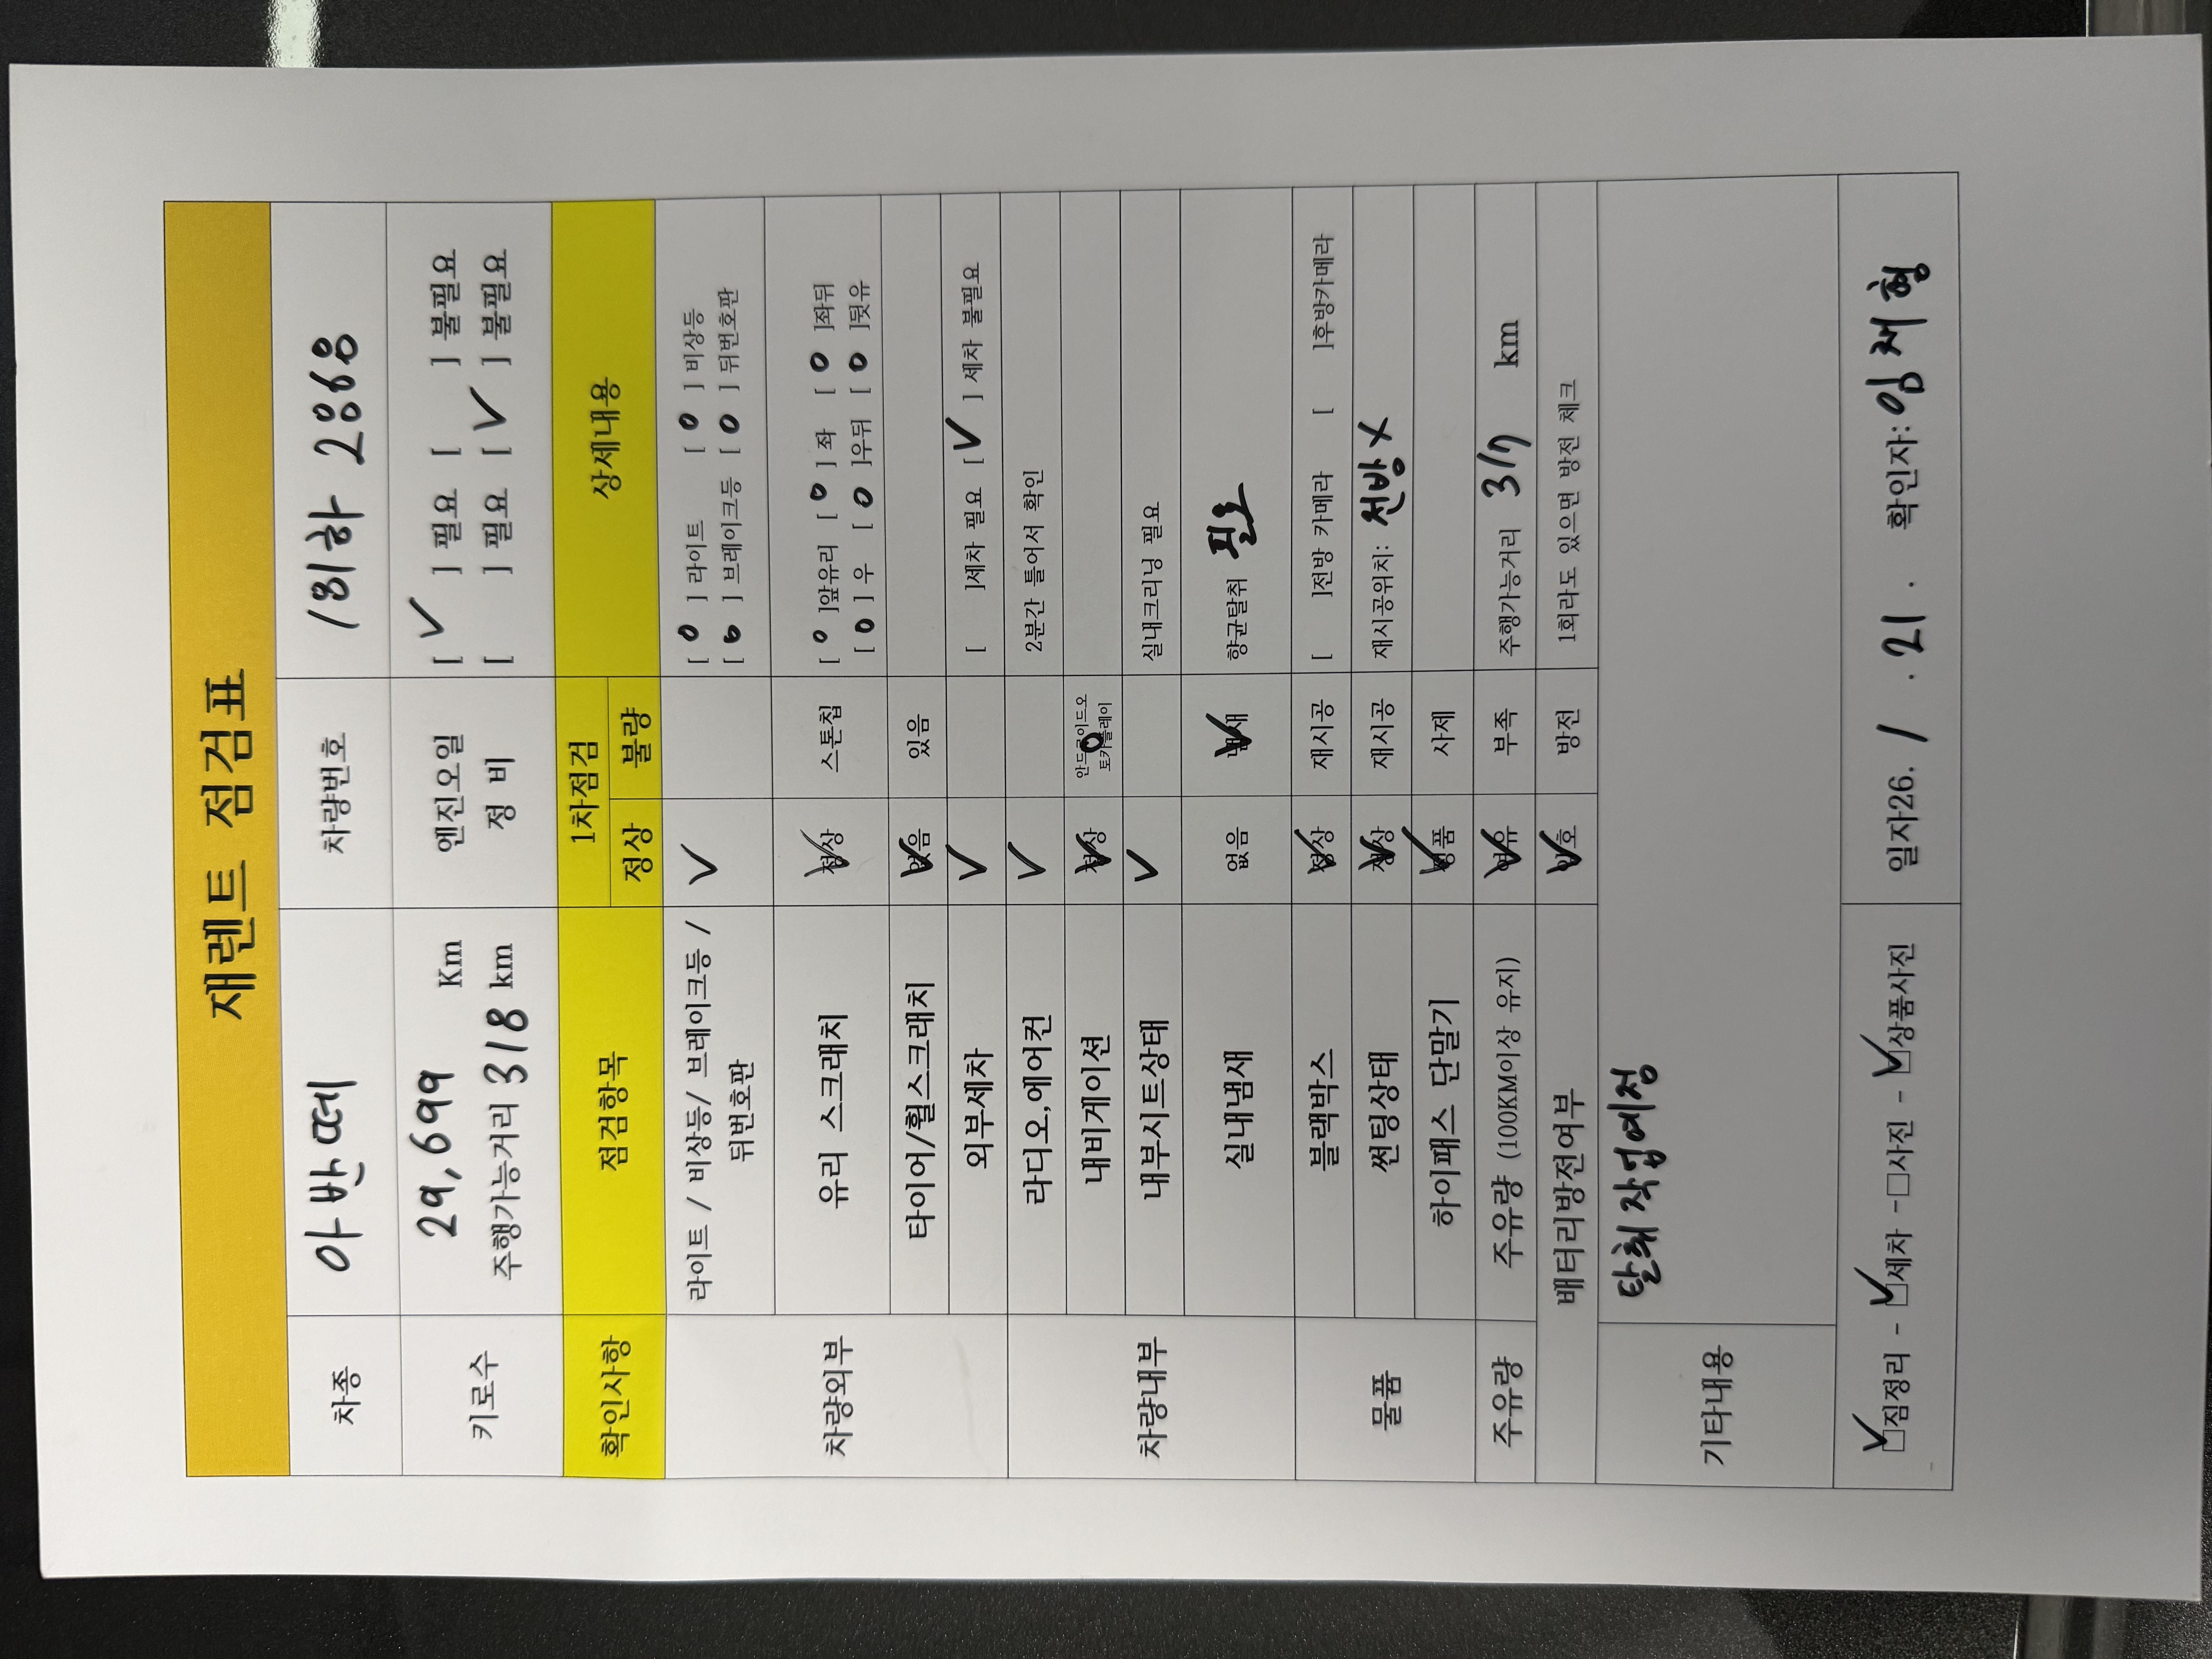 재렌트 점검표
차종 아반떼 차량번호 181하 2868
키로수 29,699 Km 엔진오일 [ ✓ ] 필요 [ ] 불필요
주행가능거리 318 km 정 비 [ ] 필요 [ ✓ ] 불필요
확인사항 점검항목 1차점검 상세내용
정상 불량
차량외부
라이트 / 비상등/ 브레이크등 / ✓ [ o ] 라이트 [ o ] 비상등
뒤번호판 [ o ] 브레이크등 [ o ] 뒤번호판
유리 스크래치 정상 ✓ 스톤칩 [ o ]앞유리 [ o ] 좌 [ o ]좌뒤
[ o ] 우 [ o ]우뒤 [ o ]뒷유
타이어/휠스크래치 없음 ✓ 있음
외부세차 ✓ [ ]세차 필요 [ ✓ ] 세차 불필요
차량내부
라디오,에어컨 ✓ 2분간 틀어서 확인
내비게이션 정상 ✓ 안드로이드오
토카플레이
내부시트상태 ✓ 실내크리닝 필요
실내냄새 없음 냄새 ✓ 향균탈취 필요
물품
블랙박스 정상 ✓ 재시공 [ ]전방 카메라 [ ]후방카메라
썬팅상태 정상 ✓ 재시공 재시공위치: 전방 X
하이패스 단말기 정품 ✓ 사제
주유량 주유량 (100KM이상 유지) 여유 ✓ 부족 주행가능거리 317 km
배터리방전여부 양호 ✓ 방전 1회라도 있으면 방전 체크
기타내용 탈취작업예정
✓□짐정리 - ✓□세차 -□사진 - ✓□상품사진 일자26. 1 . 21 . 확인자: 임재형